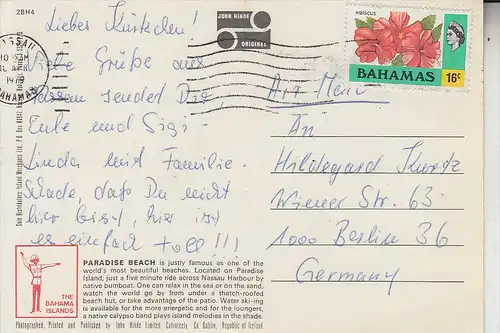 2BH4
Lieber Kürkchen!
JOHN HINDE
ORIGINAL
HIBISCUS
BAHAMAS 16c
NASSAU
BAHAMAS
Viele Grüße aus
Nassau sendet Dir
Eule und Sigi
Linda mit Familie.
Schade, daß Du nicht
hier bist, hier ist
es einfach toll!!!
Air Mail
An
Hildegard Kurtz
Wiener Str. 63
1000 Berlin 36
Germany
THE
BAHAMA
ISLANDS
PARADISE BEACH is justly famous as one of the
world's most beautiful beaches. Located on Paradise
Island, just a five minute ride across Nassau Harbour by
native bumboat. One can relax in the sea or on the sand,
watch the world go by from under a thatch-roofed
beach hut, or take advantage of the patio. Water ski-ing
is available for the more energetic and for the loungers,
a native calypso band plays island melodies in the shade.
Photographed, Printed and Published by John Hinde Limited, Cabinteely, Co. Dublin, Republic of Ireland
Sole Distributors: Island Merchants Ltd.,